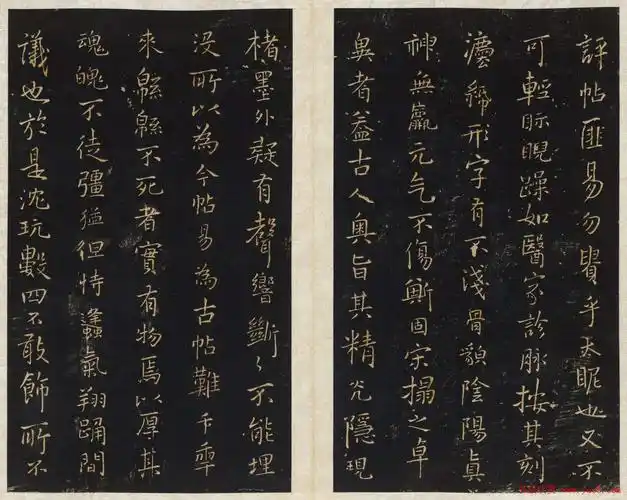 評帖匪易勿費乎忝昵也又不
可輕眎睨躁如醫家診脈按其刻
形字有不淺骨貌陰陽眞
神無羸元气不傷斷固宋搨之卓
異者蓋古人奥旨其精光隱現
楮墨外疑有聲響斷〻不能埋
沒所以為今帖易為古帖難千秊
來緜緜不死者實有物焉以厚其
魂魄不徒彊猛但恃氣翔踊間
議也於是沈玩數四不敢飾所不